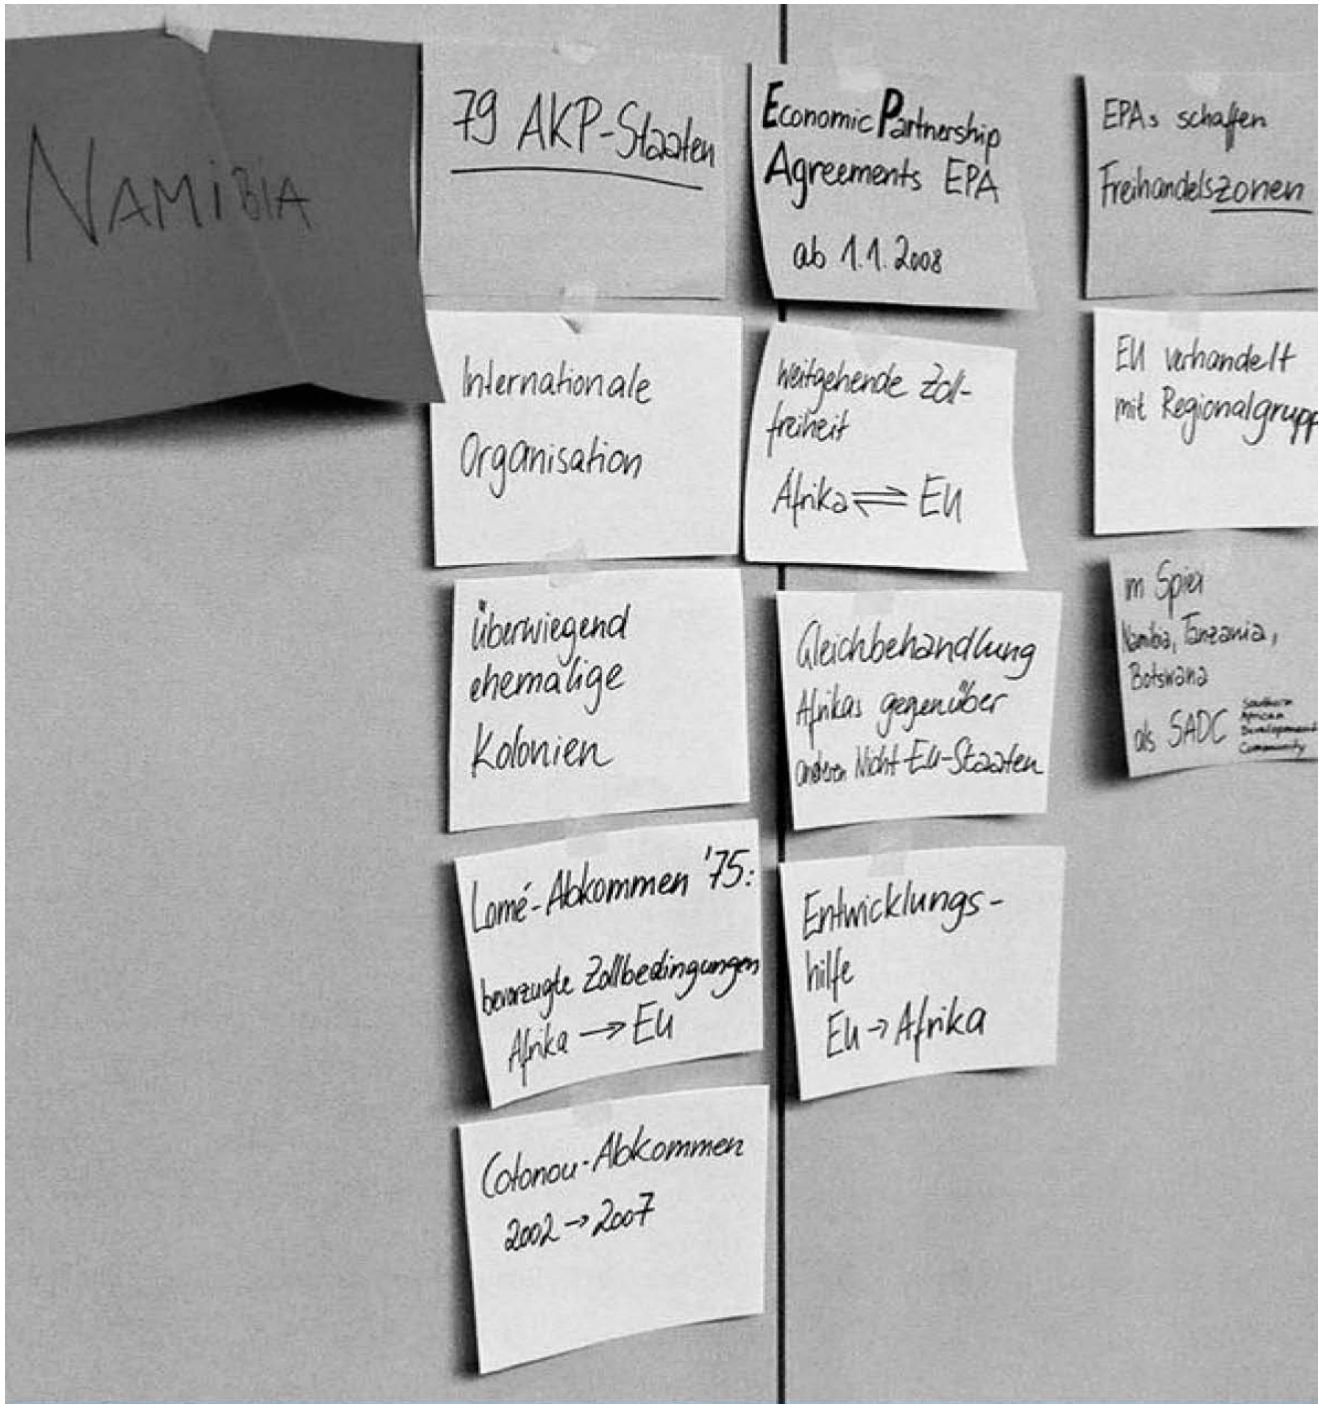 NAMIBIA
79 AKP-Staaten
Internationale
Organisation
überwiegend
ehemalige
Kolonien
Lomé-Abkommen '75:
bevorzugte Zollbedingungen
Afrika → EU
Cotonou-Abkommen
2002 → 2007
Economic Partnership
Agreements EPA
ab 1.1.2008
weitgehende Zoll-
freiheit
Afrika ⇌ EU
Gleichbehandlung
Afrikas gegenüber
anderen Nicht EU-Staaten
Entwicklungs-
hilfe
EU → Afrika
EPAs schaffen
Freihandelszonen
EU verhandelt
mit Regionalgrupp
im Spiel
Namibia, Tanzania,
Botswana
als SADC
Southern
African
Development
Community